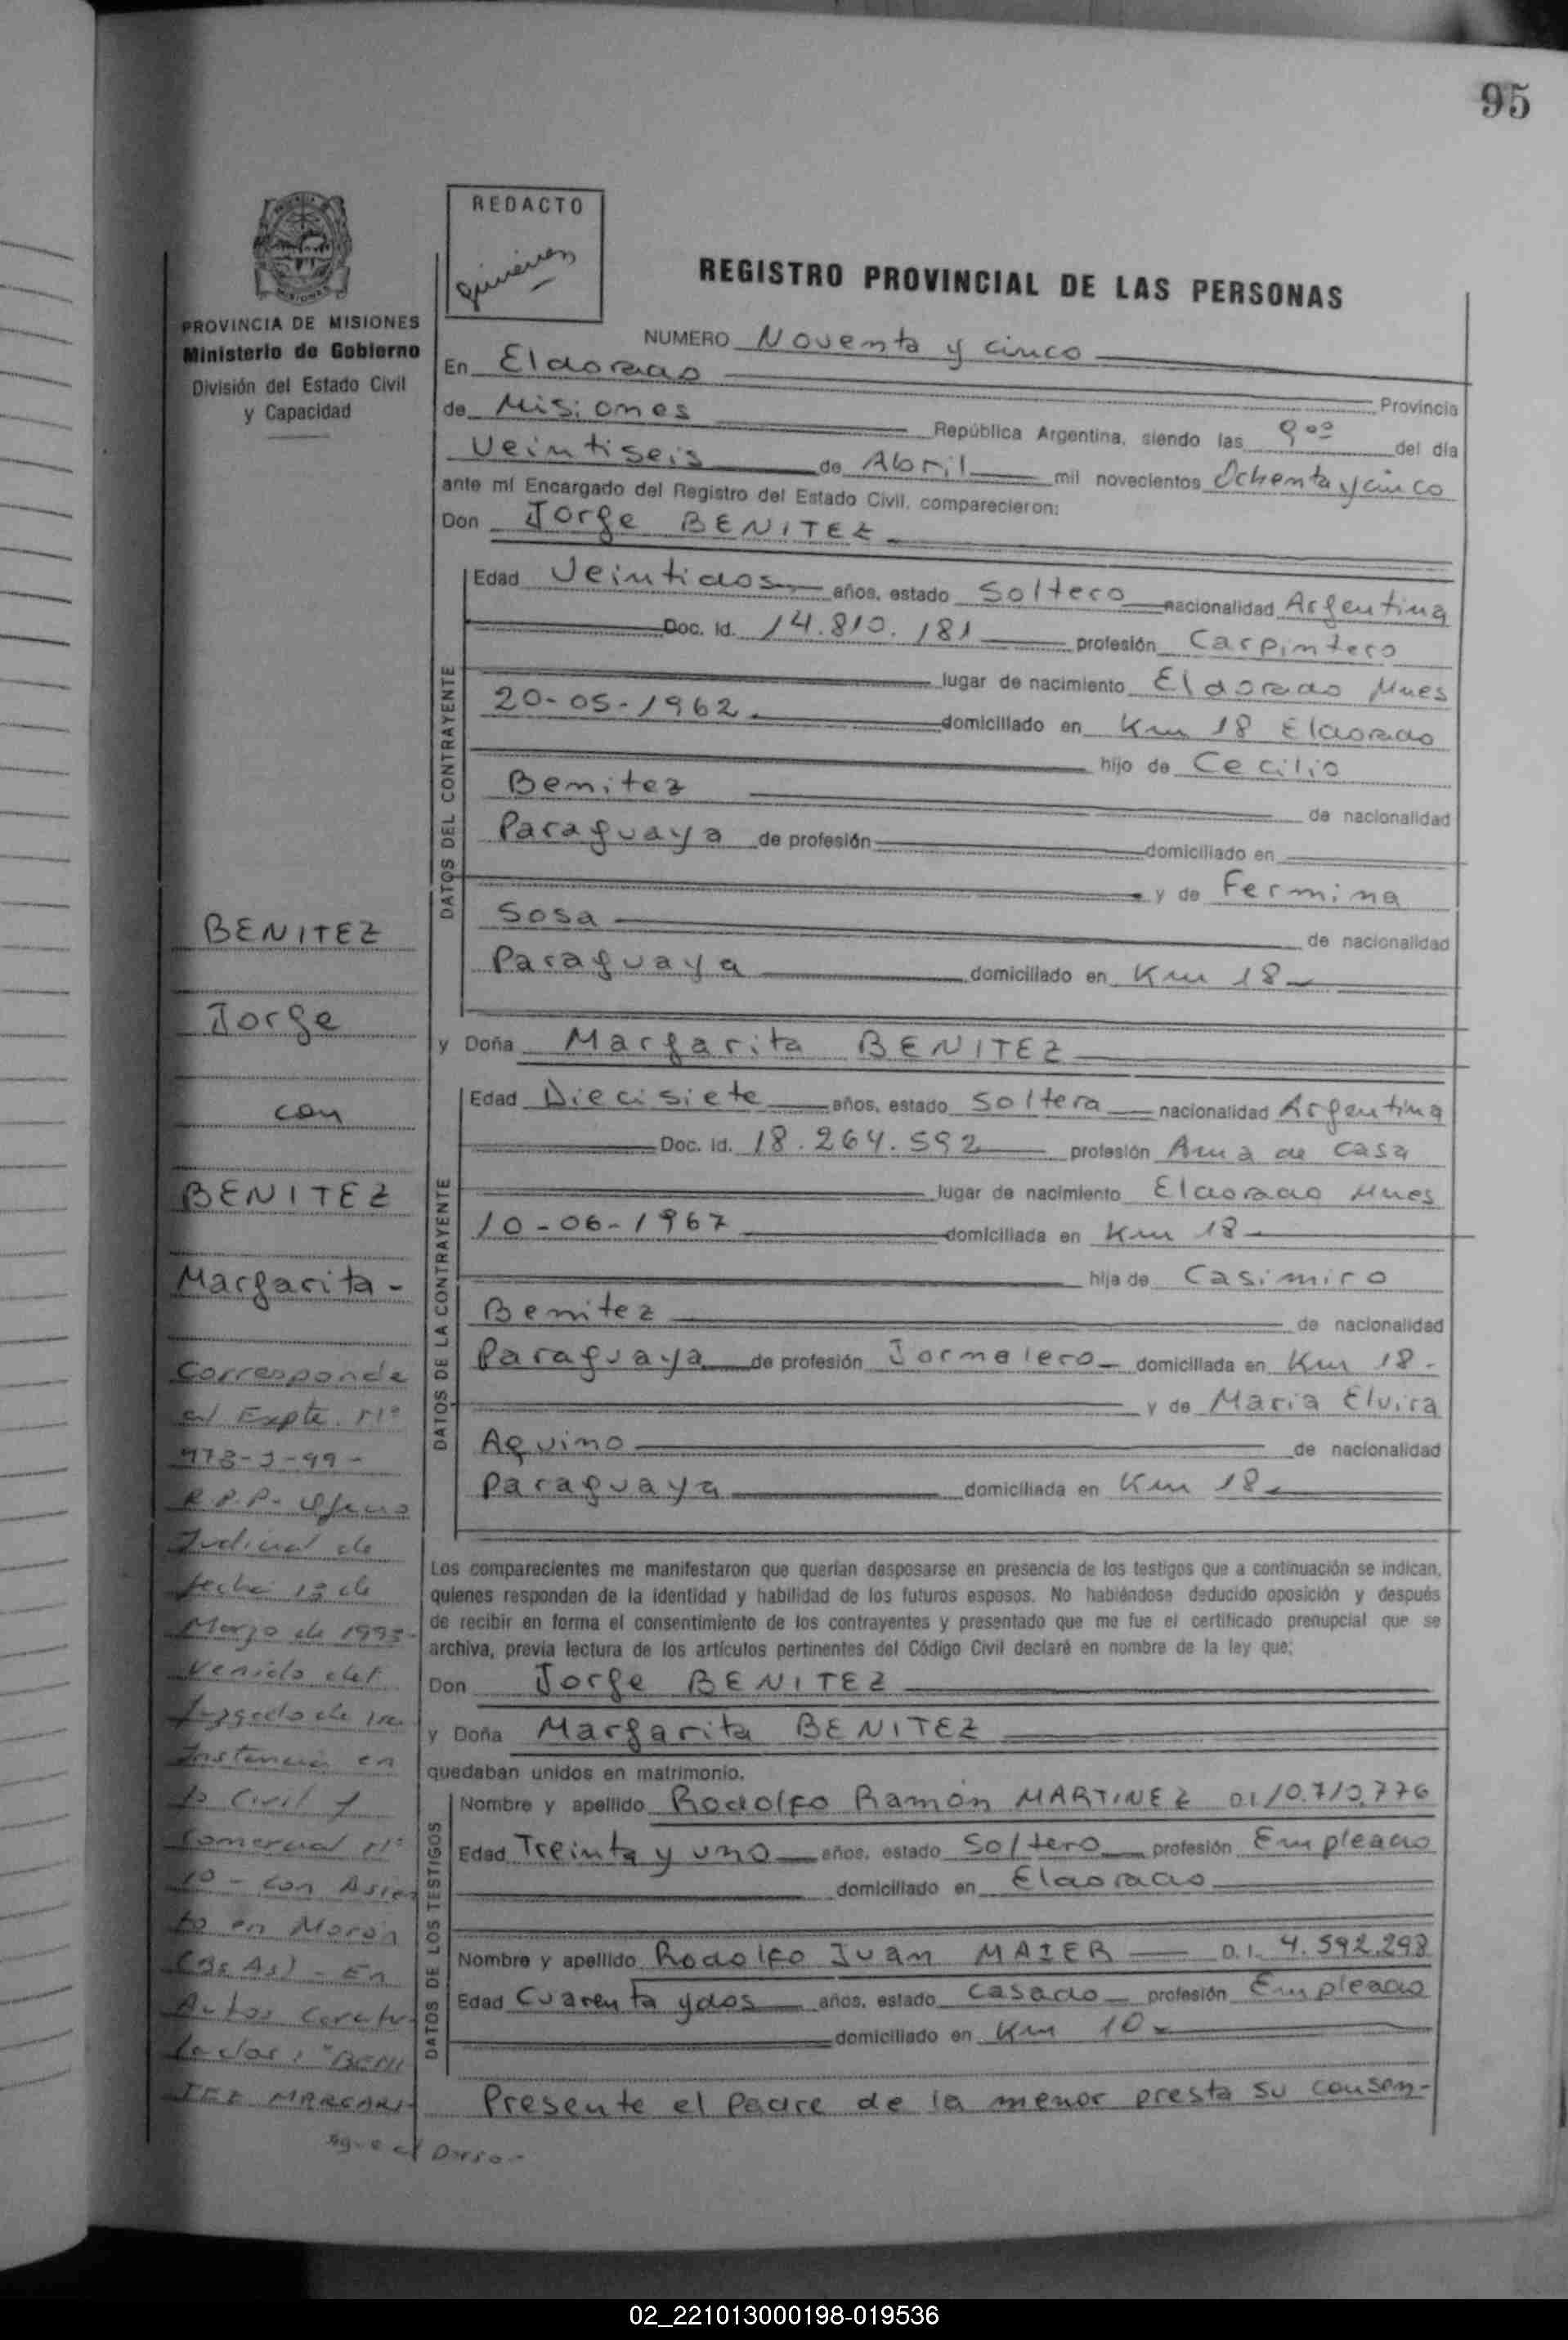 95
REDACTO
REGISTRO PROVINCIAL DE LAS PERSONAS
PROVINCIA DE MISIONES
Ministerio de Gobierno
División del Estado Civil
y Capacidad
NUMERO Noventa y cinco
En Eldorado
Provincia
de Misiones República Argentina, siendo las 9 00 del día
Veintiseis de Abril mil novecientos Ochenta y cinco
ante mí Encargado del Registro del Estado Civil, comparecieron:
Don Jorge BENITEZ
DATOS DEL CONTRAYENTE
Edad Veintidos años, estado Soltero nacionalidad Argentina
Doc. Id. 14.810.181 profesión Carpintero
lugar de nacimiento Eldorado Mnes
20-05-1962 domiciliado en Km 18 Eldorado
hijo de Cecilio
Benitez
de nacionalidad
Paraguaya de profesión domiciliado en
y de Fermina
Sosa de nacionalidad
Paraguaya domiciliado en Km 18
y Doña Margarita BENITEZ
DATOS DE LA CONTRAYENTE
Edad Diecisiete años, estado Soltera nacionalidad Argentina
Doc. Id. 18.264.592 profesión Ama de casa
lugar de nacimiento Eldorado Mnes
10-06-1967 domiciliada en Km 18
hija de Casimiro
Benitez de nacionalidad
Paraguaya de profesión Jornalero domiciliada en Km 18.
y de Maria Elvira
Aquino de nacionalidad
Paraguaya domiciliada en Km 18
Los comparecientes me manifestaron que querían desposarse en presencia de los testigos que a continuación se indican,
quienes responden de la identidad y habilidad de los futuros esposos. No habiéndose deducido oposición y después
de recibir en forma el consentimiento de los contrayentes y presentado que me fue el certificado prenupcial que se
archiva, previa lectura de los artículos pertinentes del Código Civil declaré en nombre de la ley que;
Don Jorge BENITEZ
y Doña Margarita BENITEZ
quedaban unidos en matrimonio.
DATOS DE LOS TESTIGOS
Nombre y apellido Rodolfo Ramón MARTINEZ D.I
Edad Treinta y uno años, estado Soltero profesión Empleado
domiciliado en Eldorado
Nombre y apellido Rodolfo Juan MAIER D.I. 4.592.298
Edad Cuarenta y dos años, estado Casado profesión Empleado
domiciliado en Km 10
Presente el Padre de la menor presta su consen-
BENITEZ
Jorge
con
BENITEZ
Margarita -
Corresponde
al Expte. Nº
R.P.P-
Judicial de
fecha 13 de
Marzo de
Venido del
Juzgado de 1ra
Instancia en
lo Civil y
Comercial Nº
10 - con Asien
to en Morón
(Bs As) - En
Autos Caratu-
lados: "BENI
TEZ MARGARI-
Sigue al Dorso-
02_221013000198-019536